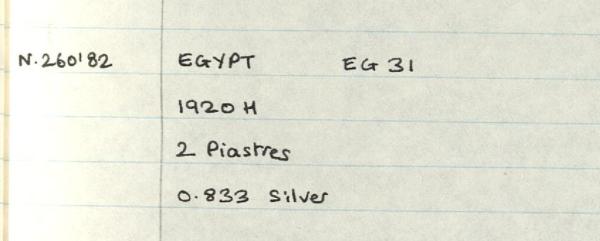 N.260182 EGYPT EG 31
1920 H
2 Piastres
0.833 Silver